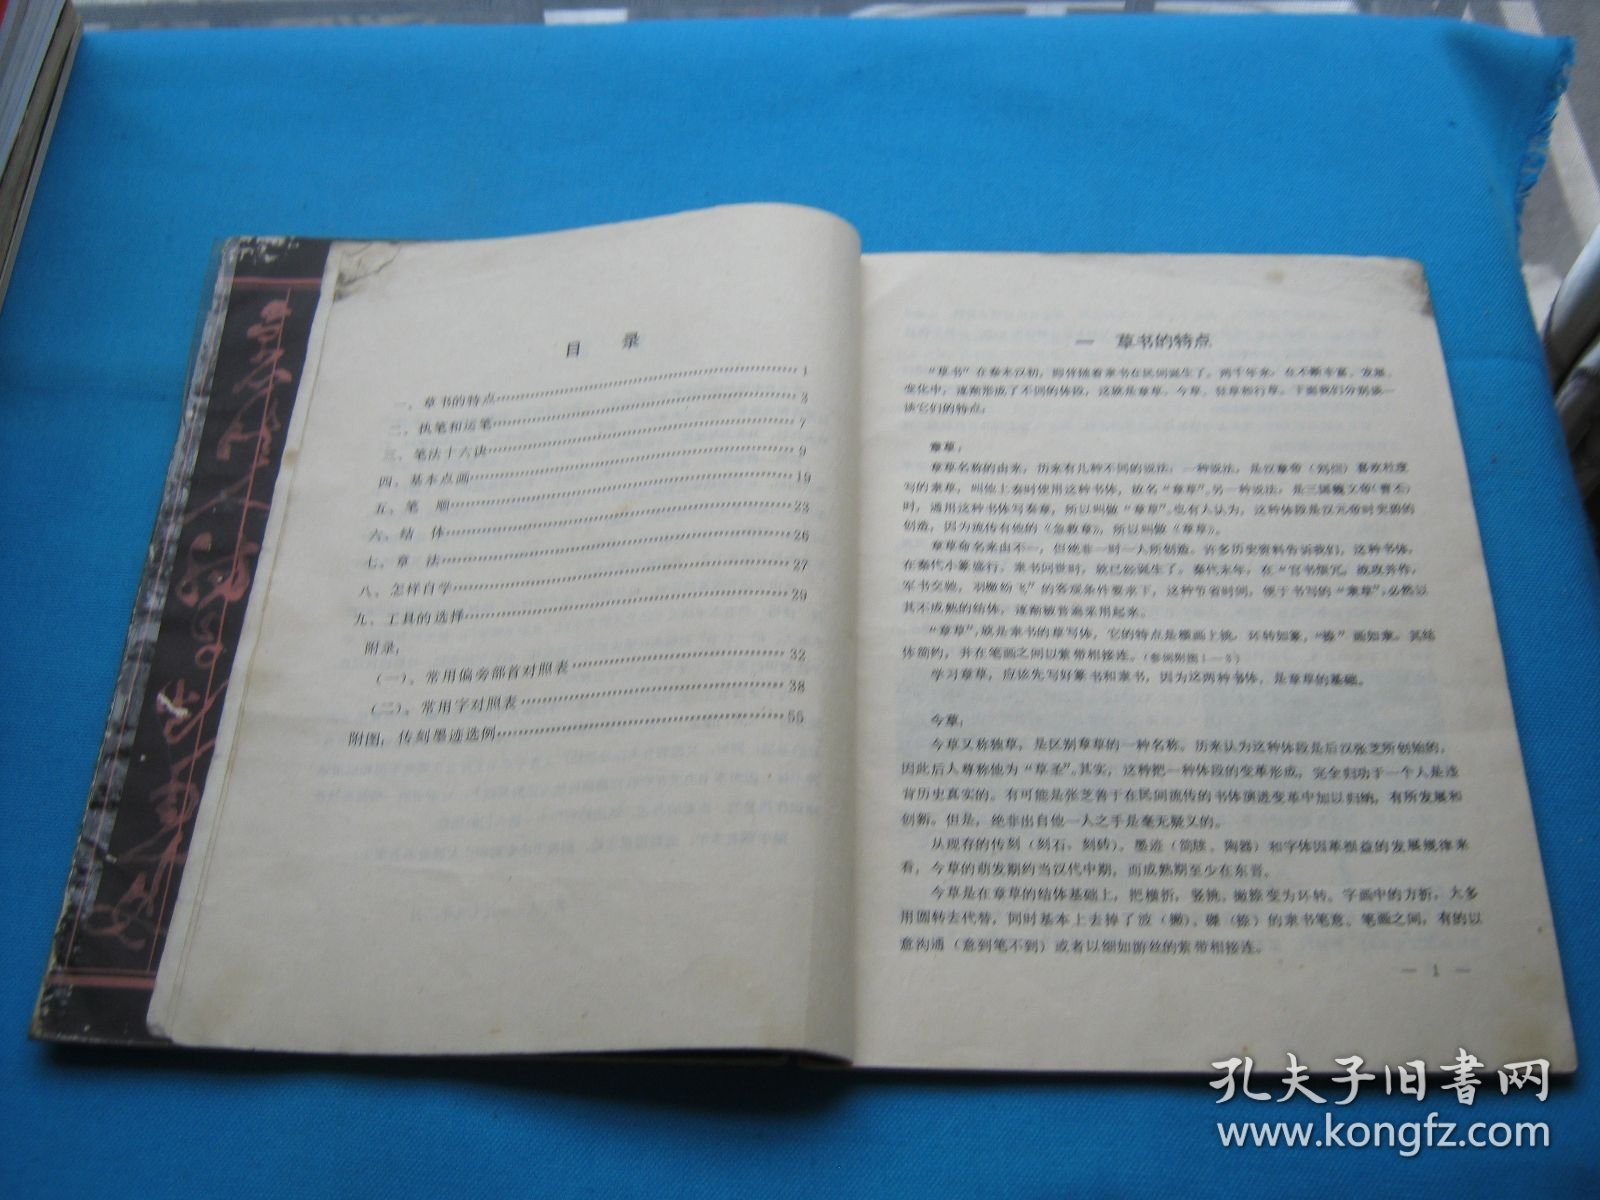 目 录
一、草书的特点 1
二、执笔和运笔 3
三、笔法十六诀 7
四、基本点画 9
五、笔 顺 19
六、结 体 23
七、章 法 26
八、怎样自学 27
九、工具的选择 29
附录：
（一）、常用偏旁部首对照表 32
（二）、常用字对照表 38
附图：传刻墨迹选例 55
一 草书的特点
“草书”在秦末汉初，即伴随着隶书在民间诞生了。两千年来，在不断丰富、发展、
变化中，逐渐形成了不同的体段，这就是章草、今草、狂草和行草。下面我们分别谈一
谈它们的特点：
章草：
章草名称的由来，历来有几种不同的说法：一种说法，是汉章帝（刘炟）喜欢杜度
写的隶草，叫他上奏时使用这种书体，故名“章草”。另一种说法，是三国魏文帝（曹丕）
时，通用这种书体写奏章，所以叫做“章草”。也有人认为，这种体段是汉元帝时史游的
创造，因为流传有他的《急救章》，所以叫做《章草》。
章草命名来由不一，但绝非一时一人所创造。许多历史资料告诉我们，这种书体，
在秦代小篆盛行，隶书问世时，就已经诞生了。秦代末年，在“官书烦冗，
军书交驰，羽檄纷飞”的客观条件要求下，这种节省时间，便于书写的“隶草”，必然以
其不成熟的结体，逐渐被普遍采用起来。
“章草”，就是隶书的草写体，它的特点是横画上挑，环转如篆，“捺”画如隶，其结
体简约，并在笔画之间以萦带相接连。（参阅附图1—3）
学习章草，应该先写好篆书和隶书，因为这两种书体，是章草的基础。
今草：
今草又称独草，是区别章草的一种名称。历来认为这种体段是后汉张芝所创始的，
因此后人尊称他为“草圣”。其实，这种把一种体段的变革形成，完全归功于一个人是违
背历史真实的。有可能是张芝善于在民间流传的书体演进变革中加以归纳，有所发展和
创新。但是，绝非出自他一人之手是毫无疑义的。
从现存的传刻（刻石，刻砖）、墨迹（简牍、陶器）和字体因革损益的发展规律来
看，今草的萌发期约当汉代中期，而成熟期至少在东晋。
今草是在章草的结体基础上，把横折，竖挑、撇捺变为环转。字画中的方折，大多
用圆转去代替，同时基本上去掉了波（撇）、磔（捺）的隶书笔意。笔画之间，有的以
意沟通（意到笔不到）或者以细如游丝的萦带相接连。
— 1 —
孔夫子旧书网
www.kongfz.com